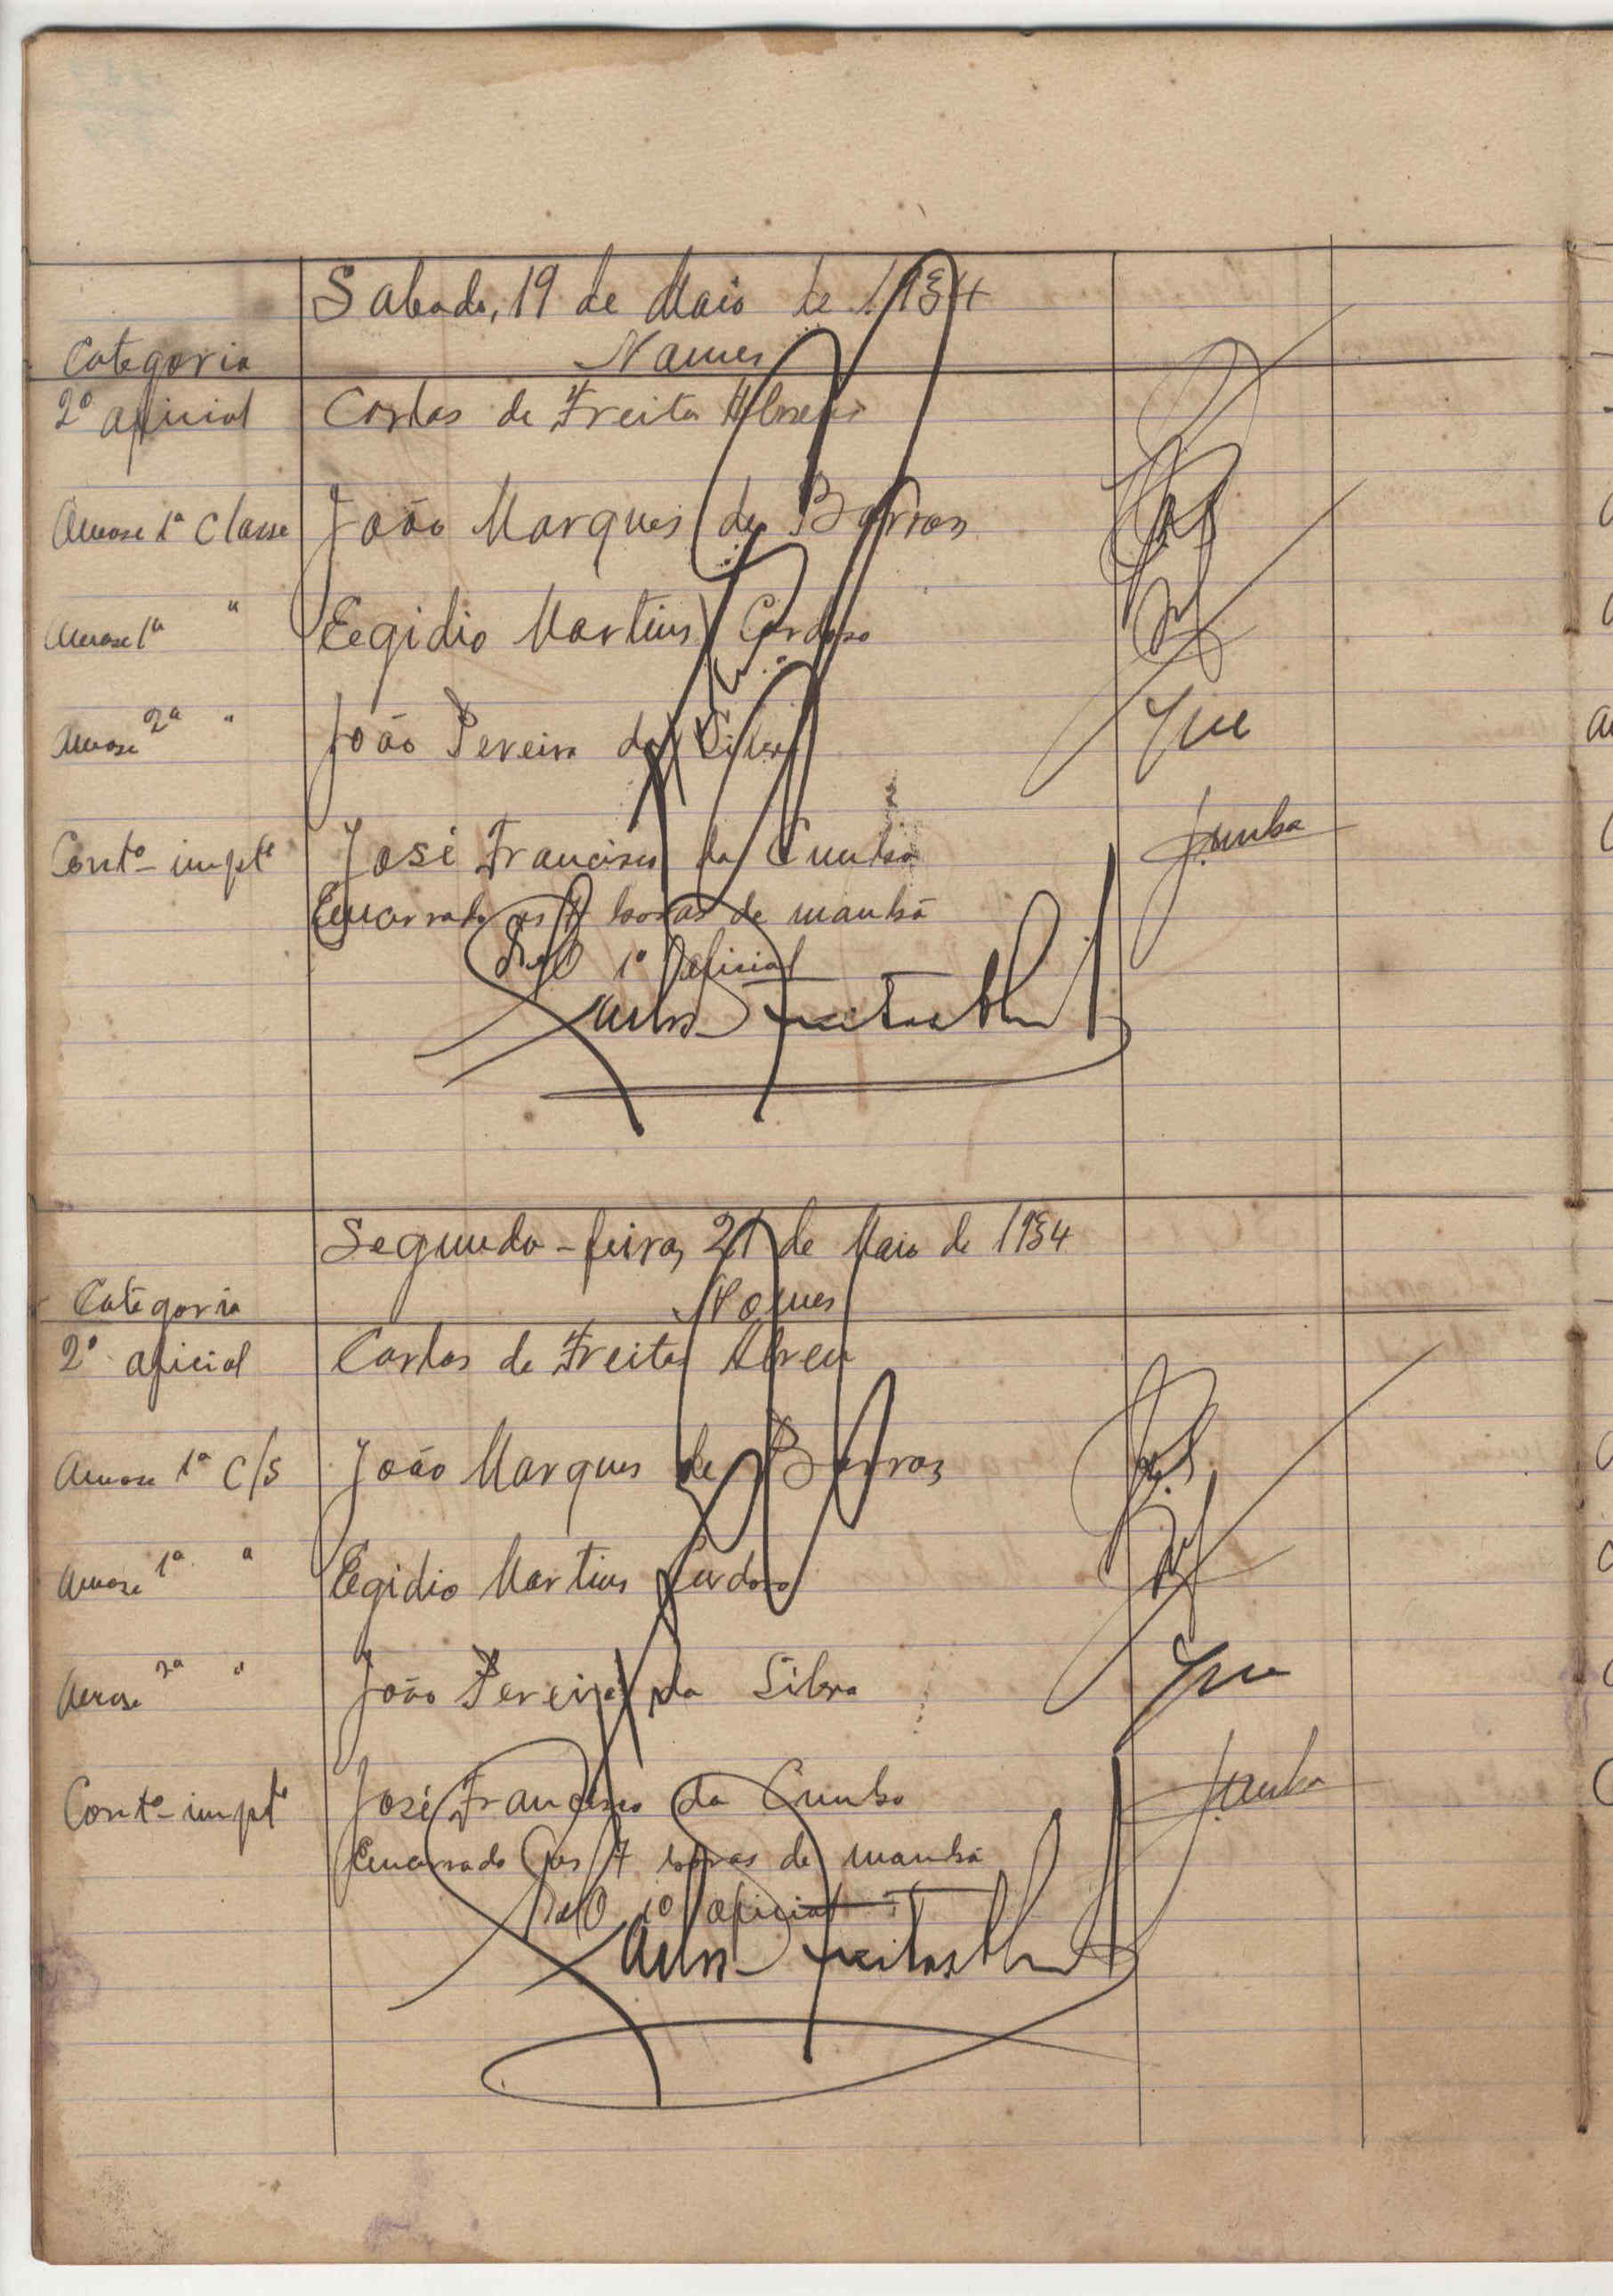 Sabado, 19 de Maio de 1934
Categoria Nomes
2º oficial Carlos de Freitas Abreu
1ª Classe João Marques de Barros
1ª " Egidio Martins Cardoso
2ª " João Pereira da Silva
Contº impte José Francisco da Cunha
Cunha
Encerrado as 7 horas da manhã
O 1º oficial
Carlos Freitas Abreu
Segunda-feira, 21 de Maio de 1934
Categoria Nomes
2º oficial Carlos de Freitas Abreu
1ª C/s João Marques de Barros
1ª " Egidio Martins Cardoso
2ª " João Pereira da Silva
Contº impte José Francisco da Cunha
Cunha
Encerrado as 7 horas da manhã
O 1º oficial
Carlos Freitas Abreu